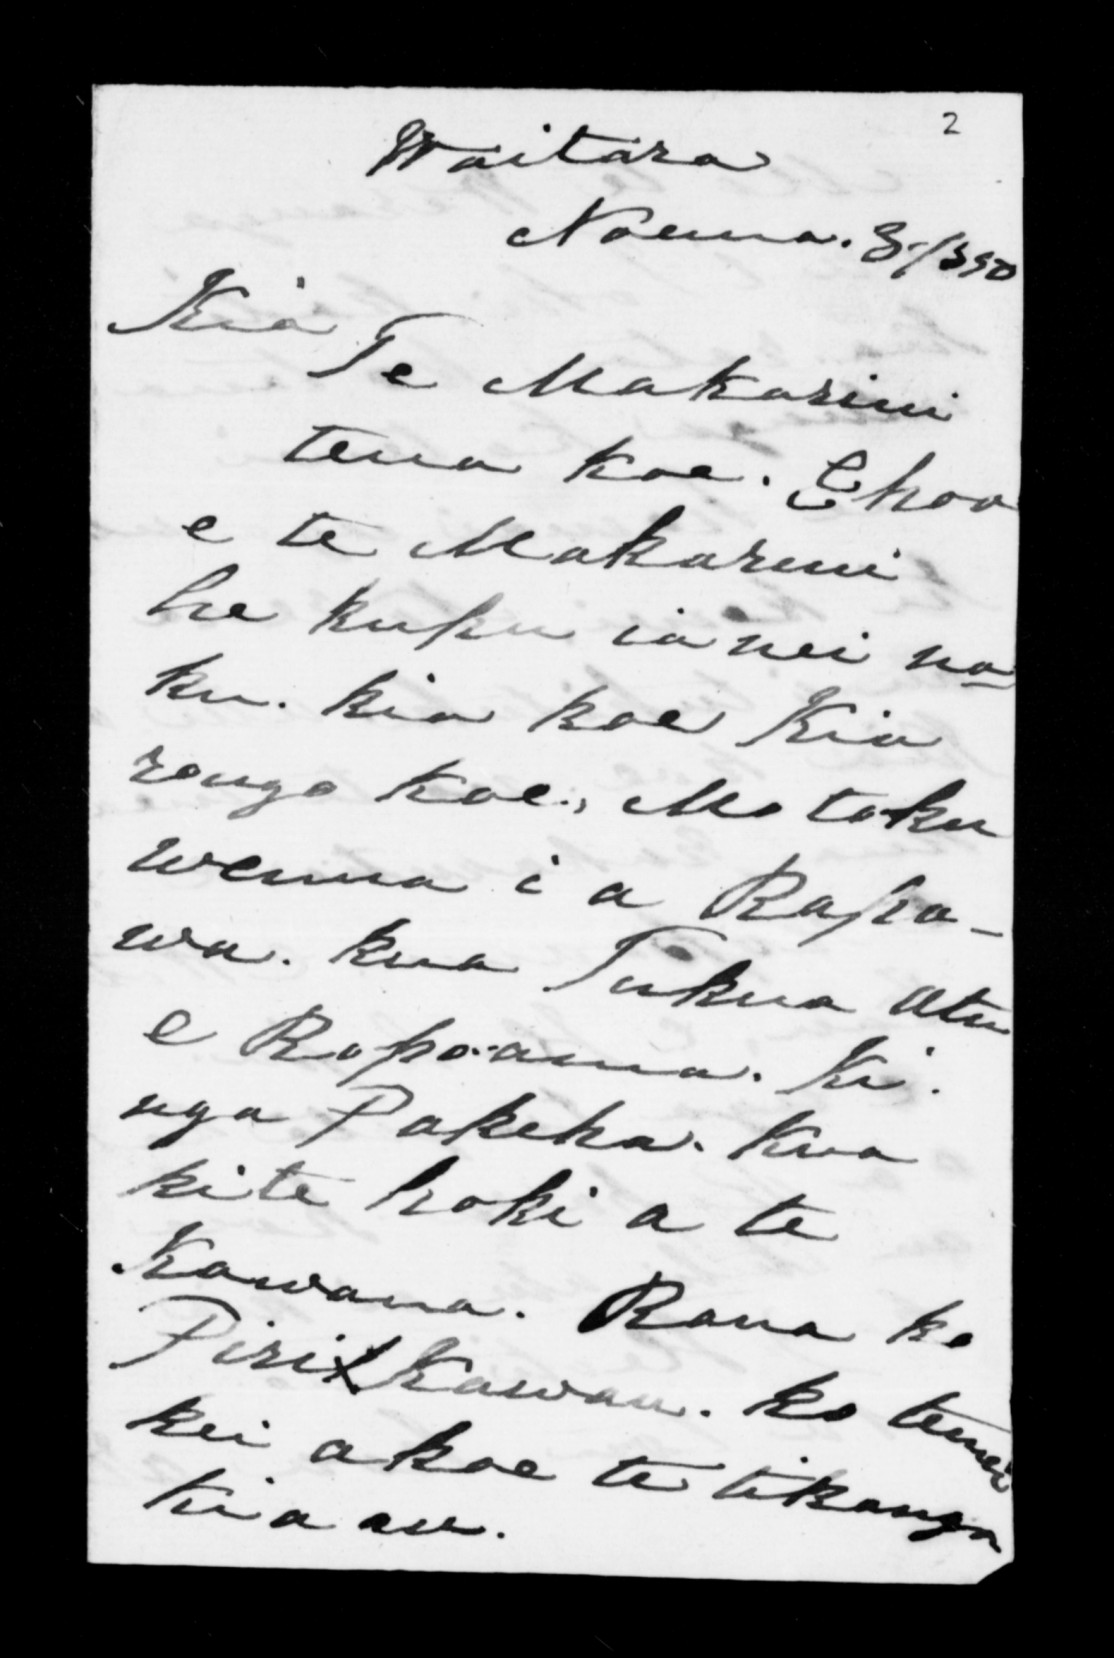 2
Waitara
Noema. 3/1850
Kia
Te Makarini
tena koe. E hoa
e te Makarini
he kupu ia nei na
ku. kia koe Kia
rongo koe, Mo toku
wenua i a Rapa-
wa. kua Tukua atu
e Ropoama. Ki.
nga Pakeha. Kua
kite hoki a te
Kawana. Raua ko
Piri Kawau. ko tenei
kei a koe te tikanga
Ki a au.